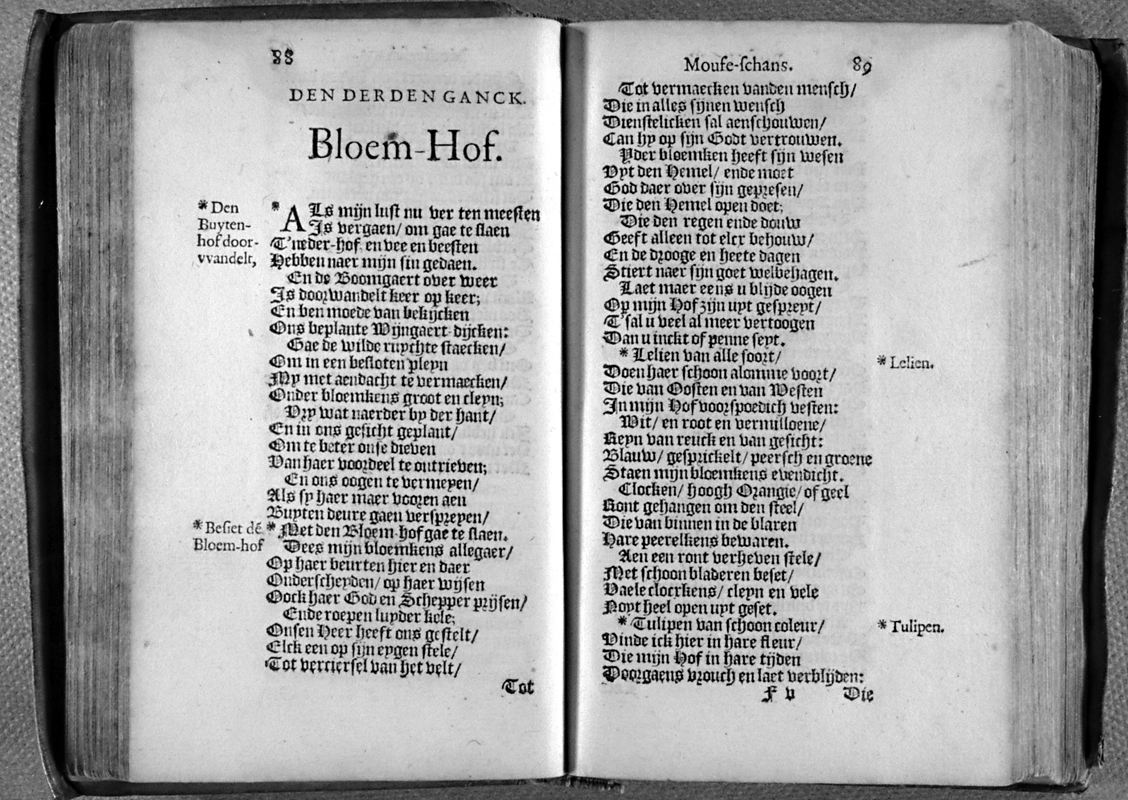 88
DEN DERDEN GANCK.
Bloem-Hof.
* Den
Buyten-
hof door-
vvandelt,
* ALs mijn lust nu ver ten meesten
Is vergaen/ om gae te slaen
T'neder-hof en vee en beesten
Hebben naer mijn sin gedaen.
En de Boomgaert over weer
Is doorwandelt keer op keer;
En ben moede van bekijcken
Ons beplante Wijngaert-dijcken:
Gae de wilde ruychte staecken/
Om in een besloten pleyn
My met aendacht te vermaecken/
Onder bloemkens groot en cleyn;
Vry wat naerder by der hant/
En in ons gesicht geplant/
Om te beter onse dieven
Van haer voordeel te ontrieven;
En ons oogen te vermeyen/
Als sy haer maer vooren aen
Buyten deure gaen verspreyen/
* Besiet dē
Bloem-hof
* Met den Bloem-hof gae te slaen.
Dees mijn bloemkens allegaer/
Op haer beurten hier en daer
Onderscheyden/ op haer wijsen
Oock haer God en Schepper prijsen/
Ende roepen luyder kele;
Onsen Heer heeft ons gestelt/
Elck een op sijn eygen stele/
Tot verciersel van het velt/
Tot
Mouse-schans. 89
Tot vermaecken vanden mensch/
Die in alles sijnen wensch
Dienstelicken sal aenschouwen/
Can hy op sijn Godt vertrouwen.
Yder bloemken heeft sijn wesen
Vyt den Hemel/ ende moet
God daer over sijn gepresen/
Die den Hemel open doet;
Die den regen ende douw
Geeft alleen tot elcx behouw/
En de drooge en heete dagen
Stiert naer sijn goet welbehagen.
Laet maer eens u blijde oogen
Op mijn Hof zijn uyt gespreyt/
T'sal u veel al meer vertoogen
Dan u inckt of penne seyt.
* Lelien van alle soort/
* Lelien.
Doen haer schoon alomme voort/
Die van Oosten en van Westen
In mijn Hof voorspoedich vesten:
Wit/ en root en vermilloene/
Reyn van reuck en van gesicht:
Blauw/ gesprickelt/ peersch en groene
Staen mijn bloemkens evendicht.
Clocken/ hoogh Orangie/ of geel
Ront gehangen om den steel/
Die van binnen in de blaren
Hare peerelkens bewaren.
Aen een ront verheven stele/
Met schoon bladeren beset/
Vaele clockens/ cleyn en vele
Noyt heel open uyt geset.
* Tulipen van schoon coleur/
* Tulipen.
Vinde ick hier in hare fleur/
Die mijn Hof in hare tijden
Doorgaens vrouch en laet verblijden:
F v Die